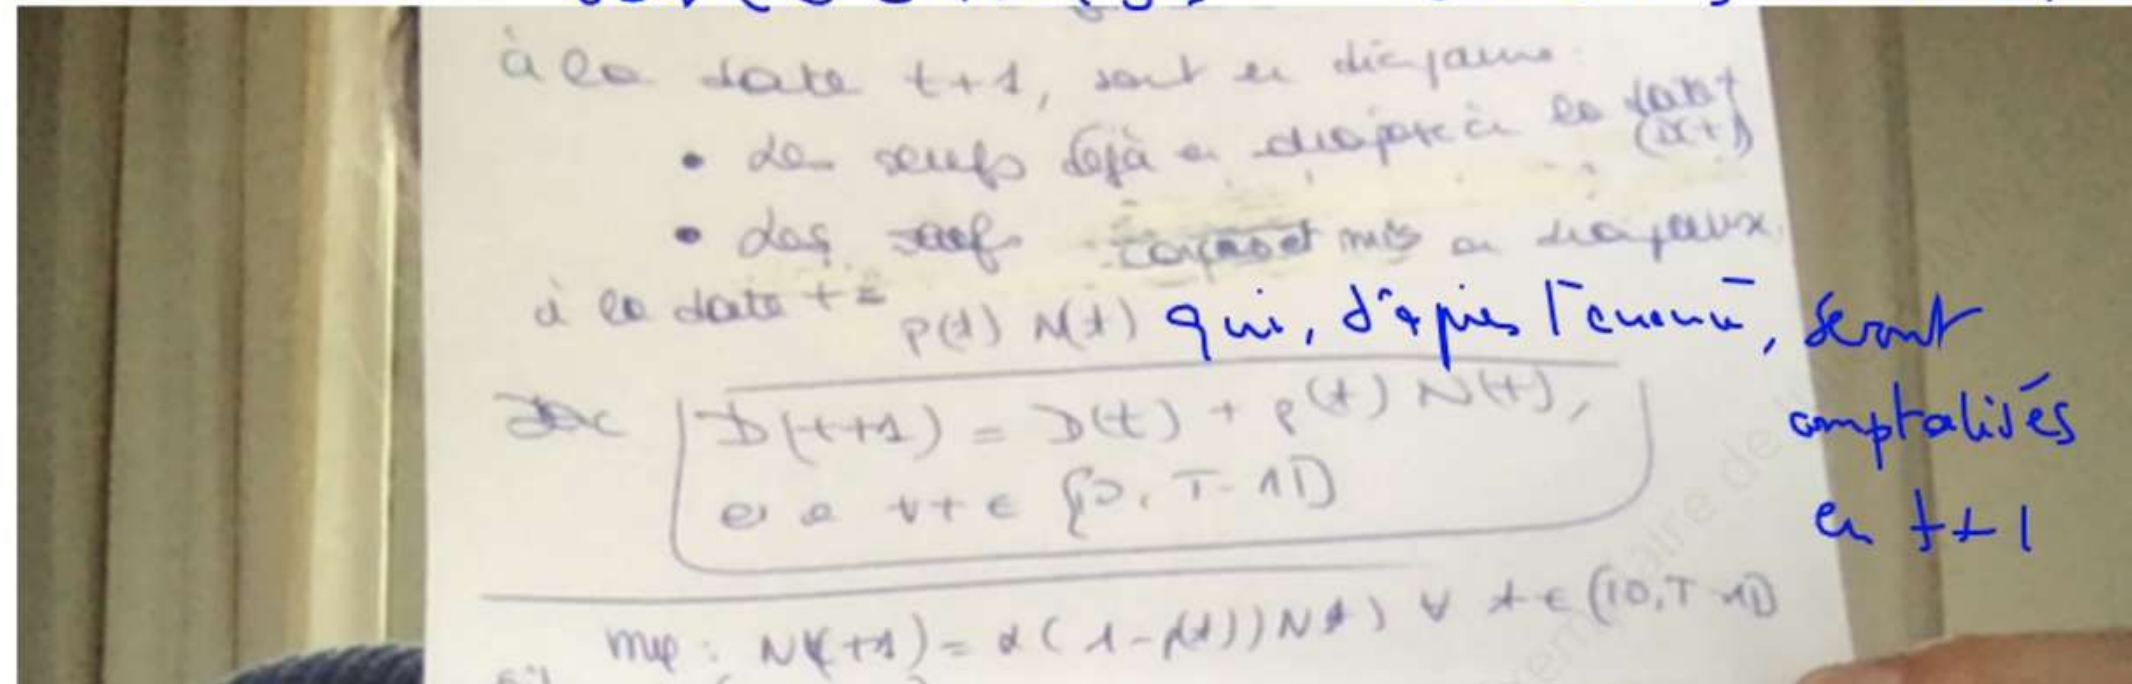 à la date t+1, sont en diapause
• des oeufs déjà en diapause à la date t
(D(t))
• des oeufs mis en diapause
à la date t =
p(t) N(t) qui, d'après l'énoncé, seront
comptabilisés
en t+1
Donc D(t+1) = D(t) + p(t) N(t),
∀t ∈ [|0, T-1|]
mq : N(t+1) = α(1-p(t))N(t) ∀ t ∈ [|0, T-1|]